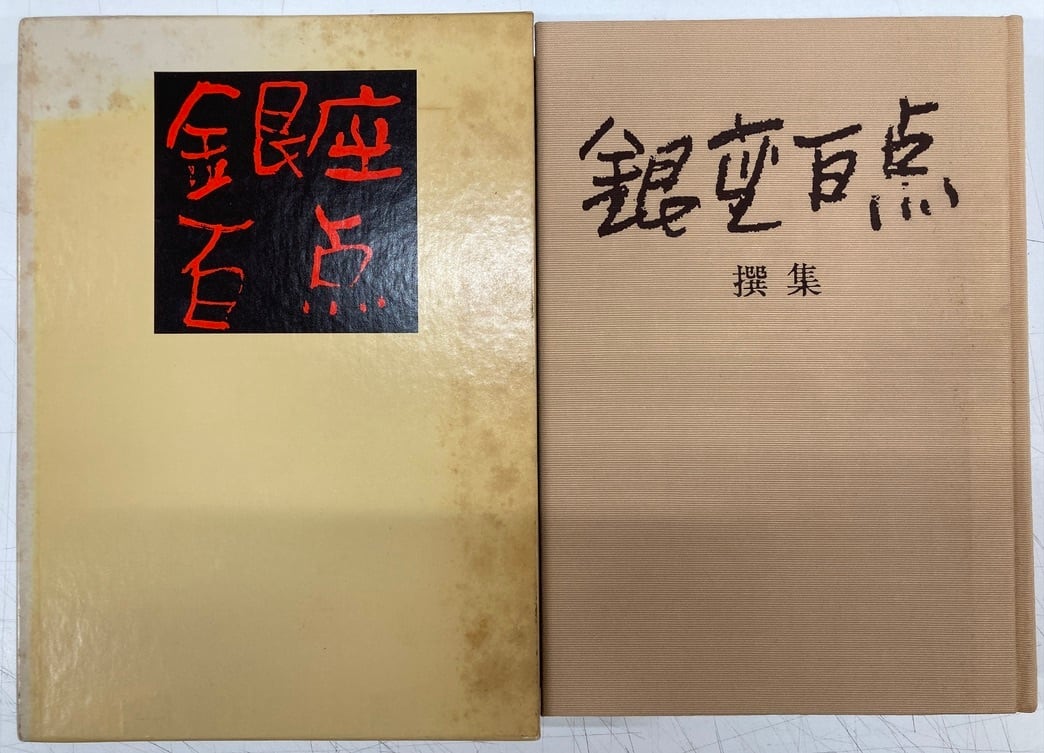 銀座
百点
銀座百点
撰集